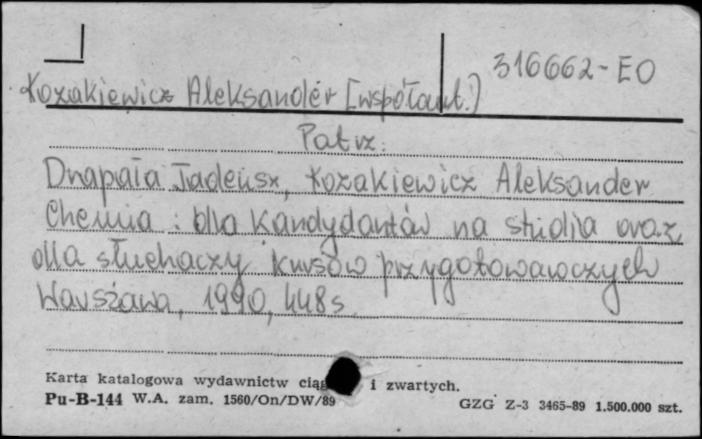 316662-EO
Kozakiewicz Aleksander [współaut.]
Patrz:
Drapała Tadeusz, Kozakiewicz Aleksander
Chemia : dla kandydantów na studia oraz
dla słuchaczy kursów przygotowawczych
Warszawa, 1990, 448 s.
Karta katalogowa wydawnictw i zwartych.
Pu-B-144 W.A. zam. 1560/On/DW/89
GZG Z-3 3465-89 1.500.000 szt.